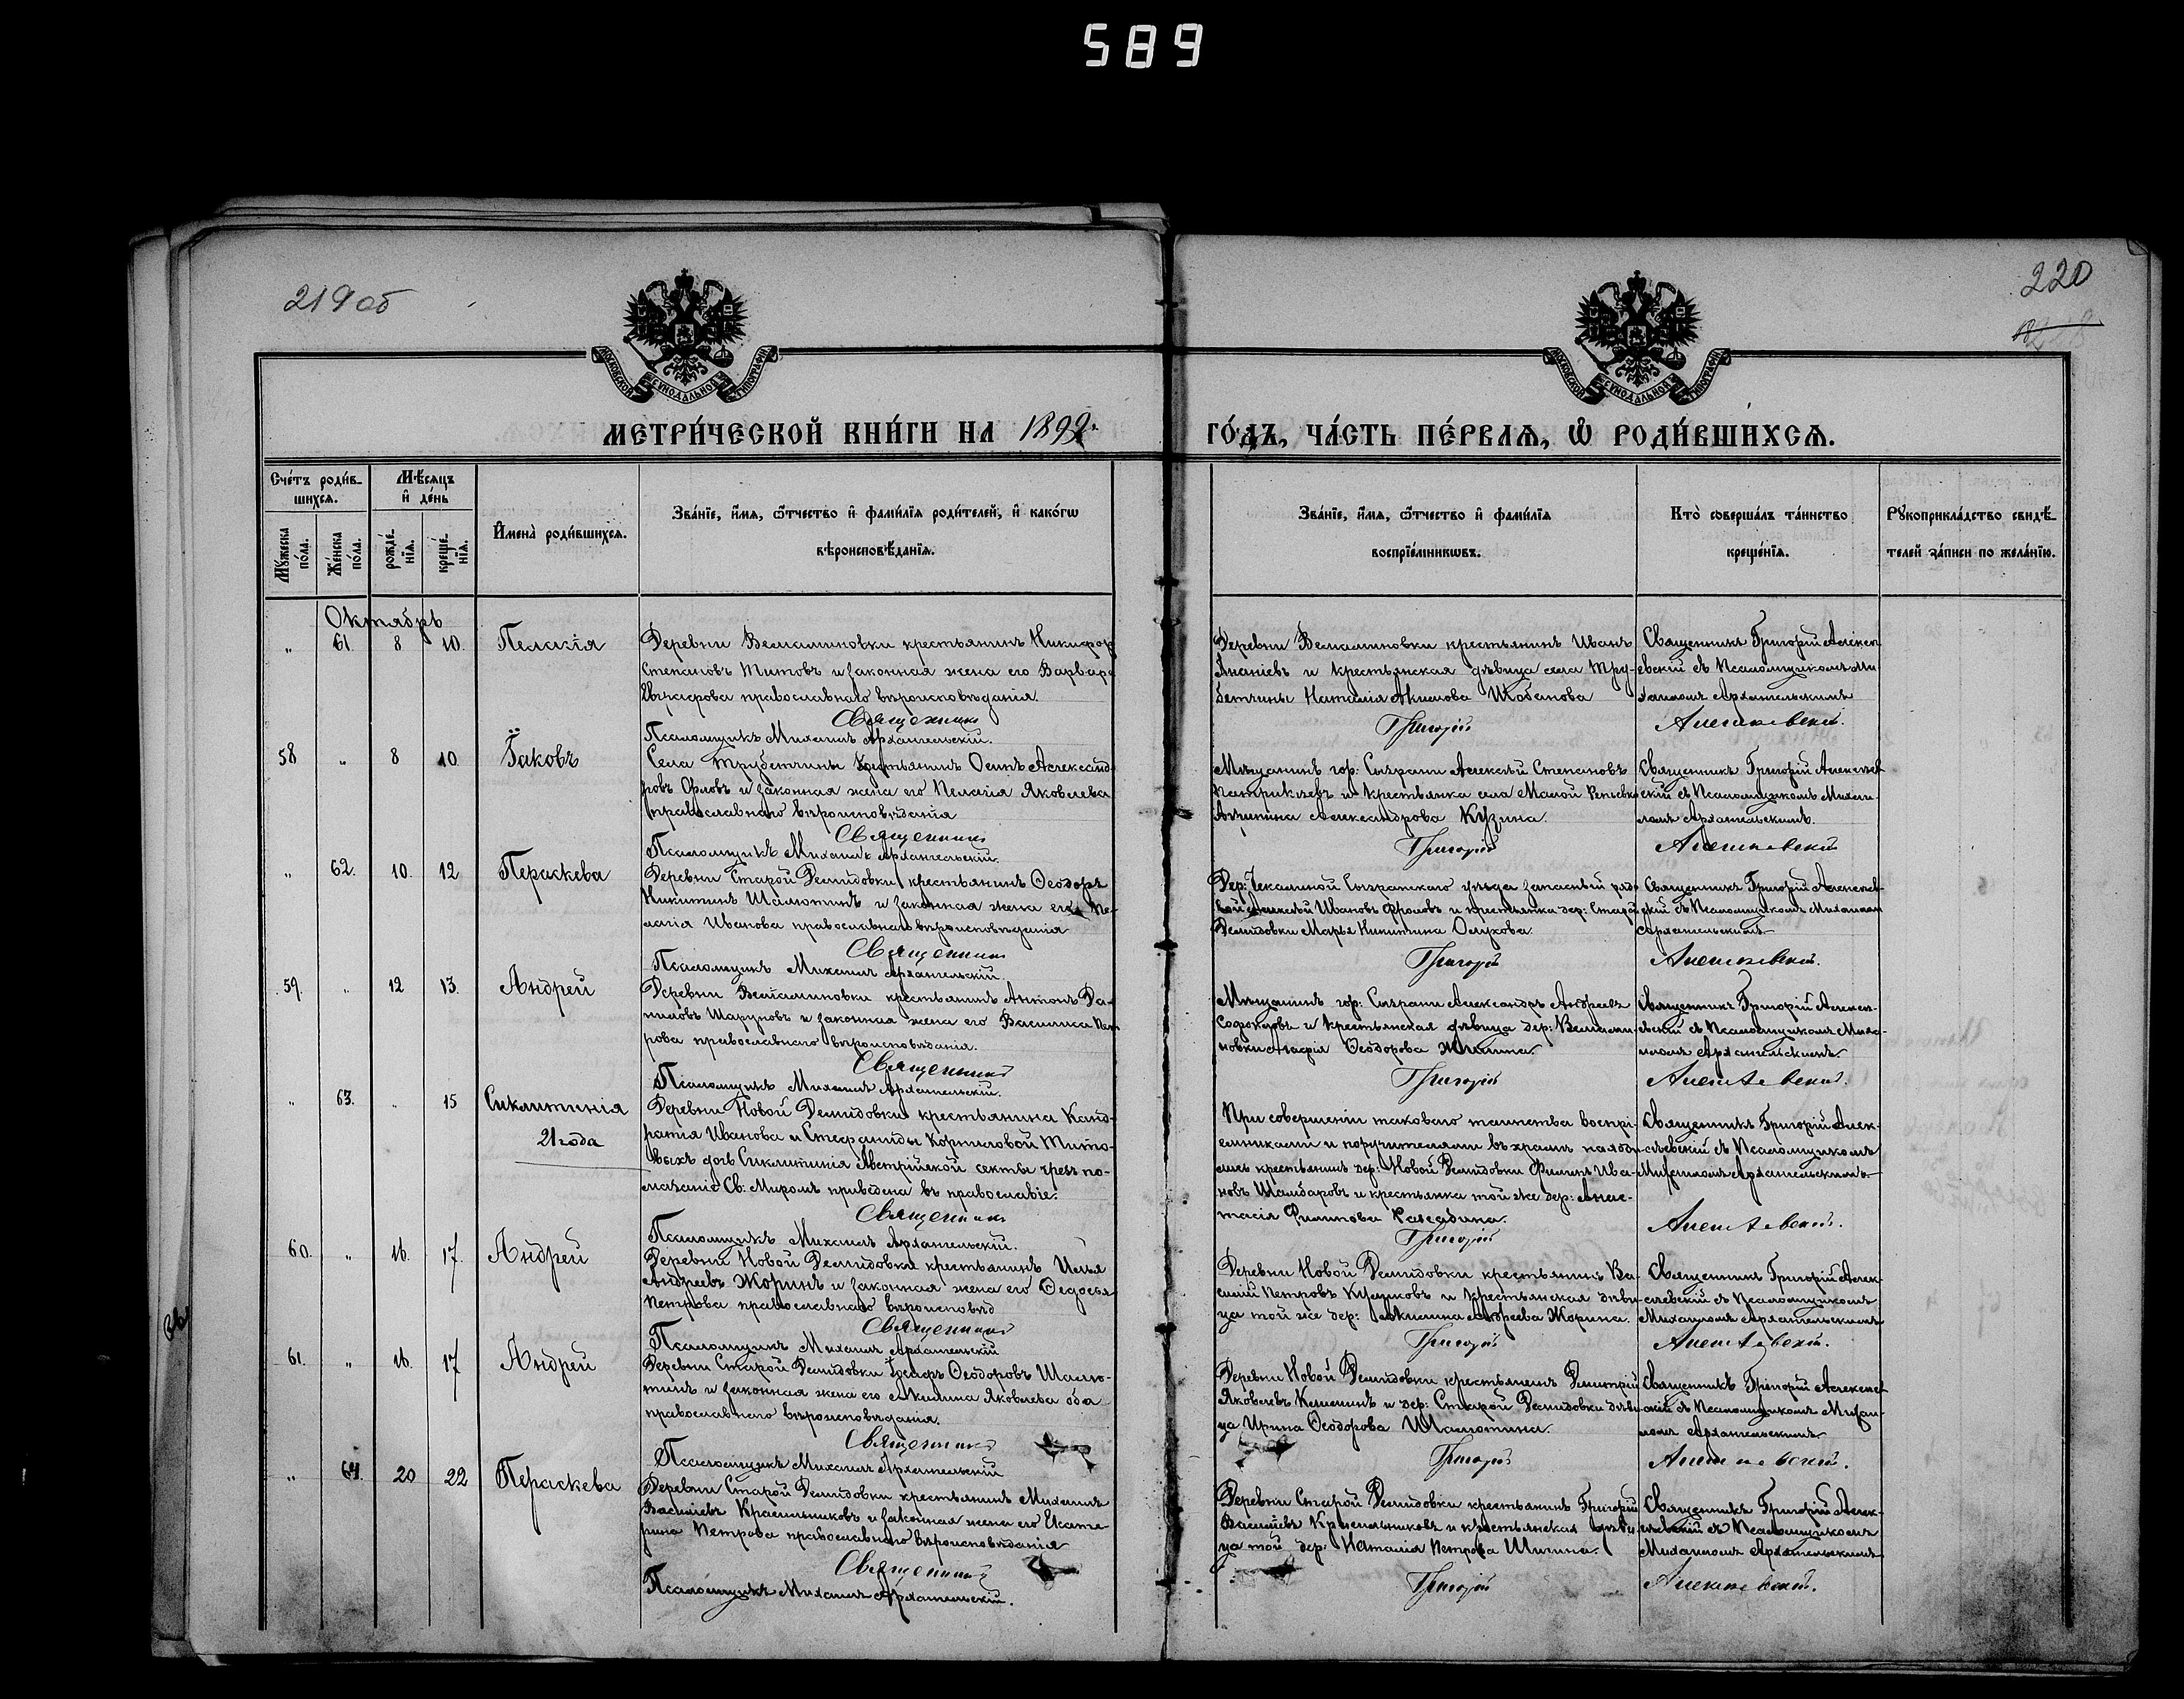 589
219 об
220
МОСКОВСКОЙ СѴНОДАЛЬНОЙ ТИПОГРАФІИ
МОСКОВСКОЙ СѴНОДАЛЬНОЙ ТИПОГРАФІИ
МЕТРИ́ЧЕСКОЙ КНИ́ГИ НА 1899 ГО́ДЪ, ЧА́СТЬ ПЕ́РВАѦ, Ѡ҆ РОДИ́ВШИХСѦ.
Сче́тъ роди́в-
шихсѧ.
Мѣ́сѧцъ
и҆ де́нь
Мꙋ́жеска по́ла.
Же́нска по́ла.
рожде́-
нїѧ.
креще́-
нїѧ.
И҆мена̀ роди́вшихсѧ.
Зва́нїе, и҆́мѧ, ѻ҆́тчество и҆ фами́лїѧ роди́телей, и҆ како́гѡ
вѣроисповѣ́данїѧ.
Зва́нїе, и҆́мѧ, ѻ҆́тчество и҆ фами́лїѧ
воспрїе́мникѡвъ.
Кто̀ соверша́лъ та́инство
креще́нїѧ.
Рꙋкоприкла́дство свидѣ́-
телей за́писи по жела́нїю.
Октябрь
„ 61. 8 10. Пелагія
Деревни Веньяминовки крестьянинъ Никифоръ
Степановъ Титовъ и законная жена его Варвара
Евграфова православнаго вѣроисповѣданія.
Священникъ
Псаломщикъ Михаилъ Архангельскій.
Деревни Веньяминовки крестьянинъ Иванъ
Ананіевъ и крестьянская дѣвица села Тру-
бетчины Наталія Акимова
Священникъ Григорій Алексѣ-
евскій съ Псаломщикомъ Ми-
хаиломъ Архангельскимъ
Григорій Алексѣевскій.
58 „ 8 10 Іаковъ
Села Трубетчины крестьянинъ Осипъ Александ-
ровъ Орловъ и законная жена его Пелагія Яковлева
православнаго вѣроисповѣданія
Священникъ
Псаломщикъ Михаилъ Архангельскій.
Мѣщанинъ гор: Сызрани Алексѣй Степановъ
Патрикѣевъ и крестьянка села Малой Репьевки
Александрова Кузина.
Священникъ Григорій Алексѣев-
скій съ Псаломщикомъ Михаи-
ломъ Архангельскимъ.
Григорій Алексѣевскій
„ 62. 10. 12 Параскева
Деревни Старой Демидовки крестьянинъ Ѳеодоръ
Никитинъ Шалютинъ и законная жена его Пе-
лагія Иванова православнаго вѣроисповѣданія
Священникъ
Псаломщикъ Михаилъ Архангельскій.
Дер: Чекалиной Сызранскаго уѣзда запасный рядо-
вой Алексѣй Ивановъ Фроловъ и крестьянка дер: Старой
Демидовки Марья Никитина
Священникъ Григорій Алексѣев-
скій съ Псаломщикомъ Михаиломъ
Архангельскимъ
Григорій Алексѣевскій.
59. „ 12 13. Андрей
Деревни Веньяминовки крестьянинъ Антонъ Да-
ниловъ Шаруновъ и законная жена его Василиса Пет-
рова православнаго вѣроисповѣданія.
Священникъ
Псаломщикъ Михаилъ Архангельскій.
Мѣщанинъ гор: Сызрани Александръ Андреевъ
и крестьянская дѣвица дер: Веньями-
новки Ѳеодорова
Священникъ Григорій Алексѣ-
евскій съ Псаломщикомъ Миха-
иломъ Архангельскимъ.
Григорій Алексѣевскій.
„ 63. „ 15 Сиклитинія
21 года
Деревни Новой Демидовки крестьянина Канд-
ратія Иванова и Стефаниды Корниловой Тито-
выхъ дочь Сиклитинія Австрійской секты чрезъ по-
мазаніе Св: Миромъ приведена въ православіе.
Священникъ
Псаломщикъ Михаилъ Архангельскій.
При совершеніи таковаго таинства воспрі-
емниками и поручителями въ храмѣ находи-
лись крестьянинъ дер: Новой Демидовки Филипъ Ива-
новъ Шамбаровъ и крестьянка той же дер: Анас-
тасія Филипова
Священникъ Григорій Алек-
сѣевскій съ Псаломщикомъ
Михаиломъ Архангельскимъ.
Григорій Алексѣевскій.
60. „ 16. 17. Андрей
Деревни Новой Демидовки крестьянинъ Илья
Андреевъ Жоринъ и законная жена его Ѳедосья
Петрова православнаго вѣроисповѣд
Священникъ
Псаломщикъ Михаилъ Архангельскій
Деревни Новой Демидовки крестьянинъ Ва-
силій Петровъ и крестьянская дѣви-
ца той же дер: Акилина Андреева Жорина.
Священникъ Григорій Алек-
сѣевскій съ Псаломщикомъ
Михаиломъ Архангельскимъ
Григорій Алексѣевскій.
61. „ 16. 17 Андрей
Деревни Старой Демидовки Іосифъ Ѳеодоровъ Шалю-
тинъ и законная жена его Акилина Яковлева оба
православнаго вѣроисповѣданія.
Священникъ
Псаломщикъ Михаилъ Архангельскій
Деревни Новой Демидовки крестьянинъ Дмитрій
Яковлевъ и дер: Старой Демидовки дѣви-
ца Ирина Ѳеодорова Шалютина.
Священникъ Григорій Алексѣев-
скій съ Псаломщикомъ Михаи-
ломъ Архангельскимъ
Григорій Алексѣевскій.
„ 64. 20 22 Параскева
Деревни Старой Демидовки крестьянинъ Михаилъ
Васильевъ Красильниковъ и законная жена его Екате-
рина Петрова православнаго вѣроисповѣданія
Священникъ
Псаломщикъ Михаилъ Архангельскій.
Деревни Старой Демидовки крестьянинъ Григорій
Васильевъ Красильниковъ и крестьянская дѣви-
ца той дер: Наталія Петрова Шигина.
Священникъ Григорій Алек-
сѣевскій съ Псаломщикомъ
Михаиломъ Архангельскимъ
Григорій Алексѣевскій.